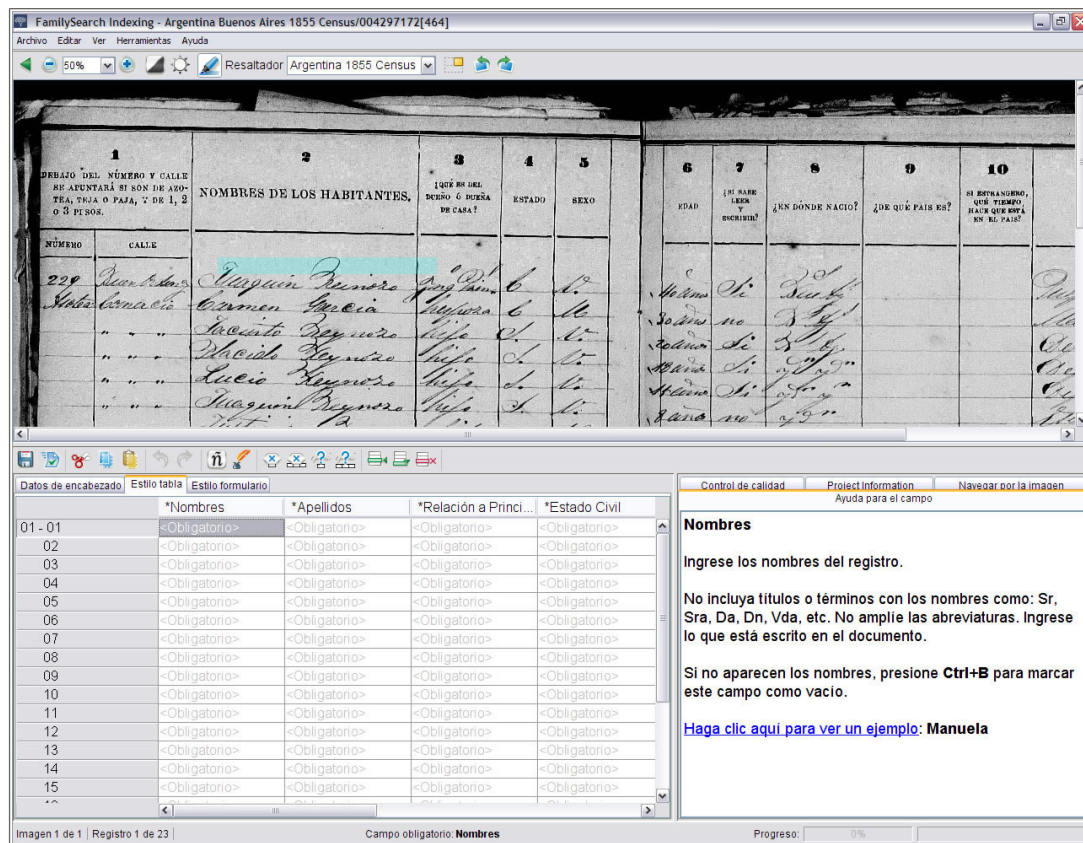 FamilySearch Indexing - Argentina Buenos Aires 1855 Census/004297172[464]
Archivo Editar Ver Herramientas Ayuda
50% Resaltador Argentina 1855 Census
1 2 3 4 5 6 7 8 9 10
DEBAJO DEL NÚMERO Y CALLE
SE APUNTARÁ SI SON DE AZO-
TEA, TEJA O PAJA, Y DE 1, 2
O 3 PISOS.
NOMBRES DE LOS HABITANTES.
¿QUÉ ES DEL
DUEÑO Ó DUEÑA
DE CASA?
ESTADO
SEXO
EDAD
¿SI SABE
LEER
Y
ESCRIBIR?
¿EN DÓNDE NACIO?
¿DE QUÉ PAIS ES?
SI ESTRANGERO,
QUÉ TIEMPO
HACE QUE ESTÁ
EN EL PAIS?
NÚMERO CALLE
229 Juaquin Reinoso C V. 40 años Si
Comercio Carmen Garcia C M 30 años no
" " " Jacinto Reynoso hijo S. V. 20 años Si
" " " Placido Reynozo hijo S. V. Si
" " " Lucio Reynoso hijo S. V. Si
" " " Juaquin Reynoso hijo S. V. 8 años no
Datos de encabezado Estilo tabla Estilo formulario
*Nombres *Apellidos *Relación a Princi... *Estado Civil
01 - 01 <Obligatorio> <Obligatorio> <Obligatorio> <Obligatorio>
02 <Obligatorio> <Obligatorio> <Obligatorio> <Obligatorio>
03 <Obligatorio> <Obligatorio> <Obligatorio> <Obligatorio>
04 <Obligatorio> <Obligatorio> <Obligatorio> <Obligatorio>
05 <Obligatorio> <Obligatorio> <Obligatorio> <Obligatorio>
06 <Obligatorio> <Obligatorio> <Obligatorio> <Obligatorio>
07 <Obligatorio> <Obligatorio> <Obligatorio> <Obligatorio>
08 <Obligatorio> <Obligatorio> <Obligatorio> <Obligatorio>
09 <Obligatorio> <Obligatorio> <Obligatorio> <Obligatorio>
10 <Obligatorio> <Obligatorio> <Obligatorio> <Obligatorio>
11 <Obligatorio> <Obligatorio> <Obligatorio> <Obligatorio>
12 <Obligatorio> <Obligatorio> <Obligatorio> <Obligatorio>
13 <Obligatorio> <Obligatorio> <Obligatorio> <Obligatorio>
14 <Obligatorio> <Obligatorio> <Obligatorio> <Obligatorio>
15 <Obligatorio> <Obligatorio> <Obligatorio> <Obligatorio>
Control de calidad Project Information Navegar por la imagen
Ayuda para el campo
Nombres
Ingrese los nombres del registro.
No incluya títulos o términos con los nombres como: Sr,
Sra, Da, Dn, Vda, etc. No amplíe las abreviaturas. Ingrese
lo que está escrito en el documento.
Si no aparecen los nombres, presione Ctrl+B para marcar
este campo como vacío.
Haga clic aquí para ver un ejemplo: Manuela
Imagen 1 de 1 Registro 1 de 23 Campo obligatorio: Nombres Progreso: 0%